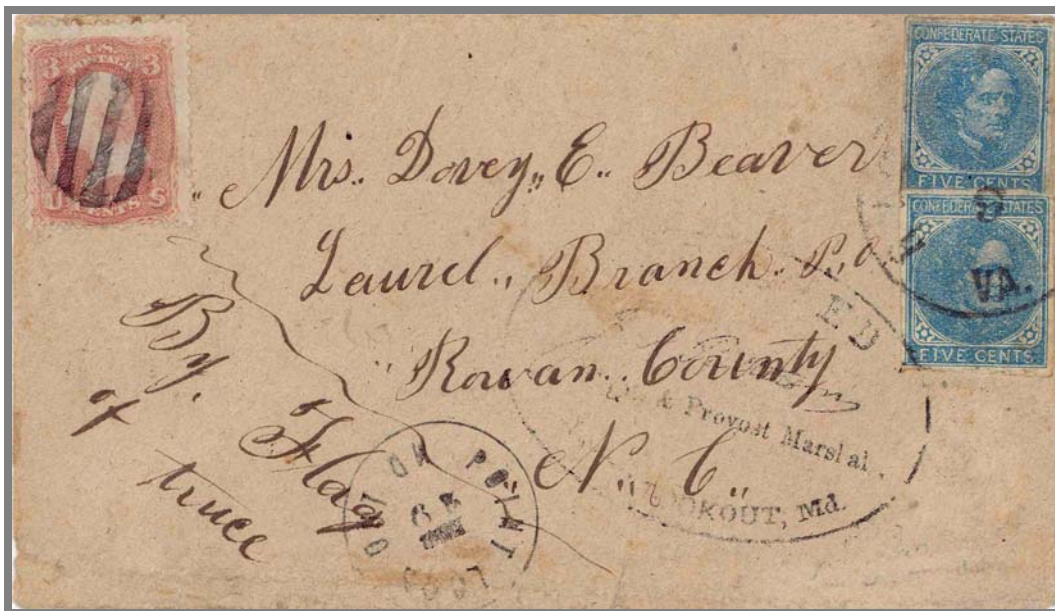 3 U.S. 3
POSTAGE
U CENTS S
CONFEDERATE STATES
FIVE CENTS
CONFEDERATE STATES
FIVE CENTS
VA.
"Mrs. Dovey "E." Beaver
Laurel, Branch. P.o
Rowan County
"N. C."
By. Flag
of truce
ED
& Provost Marshal.
OOKOUT, Md.
POINT
LOOK